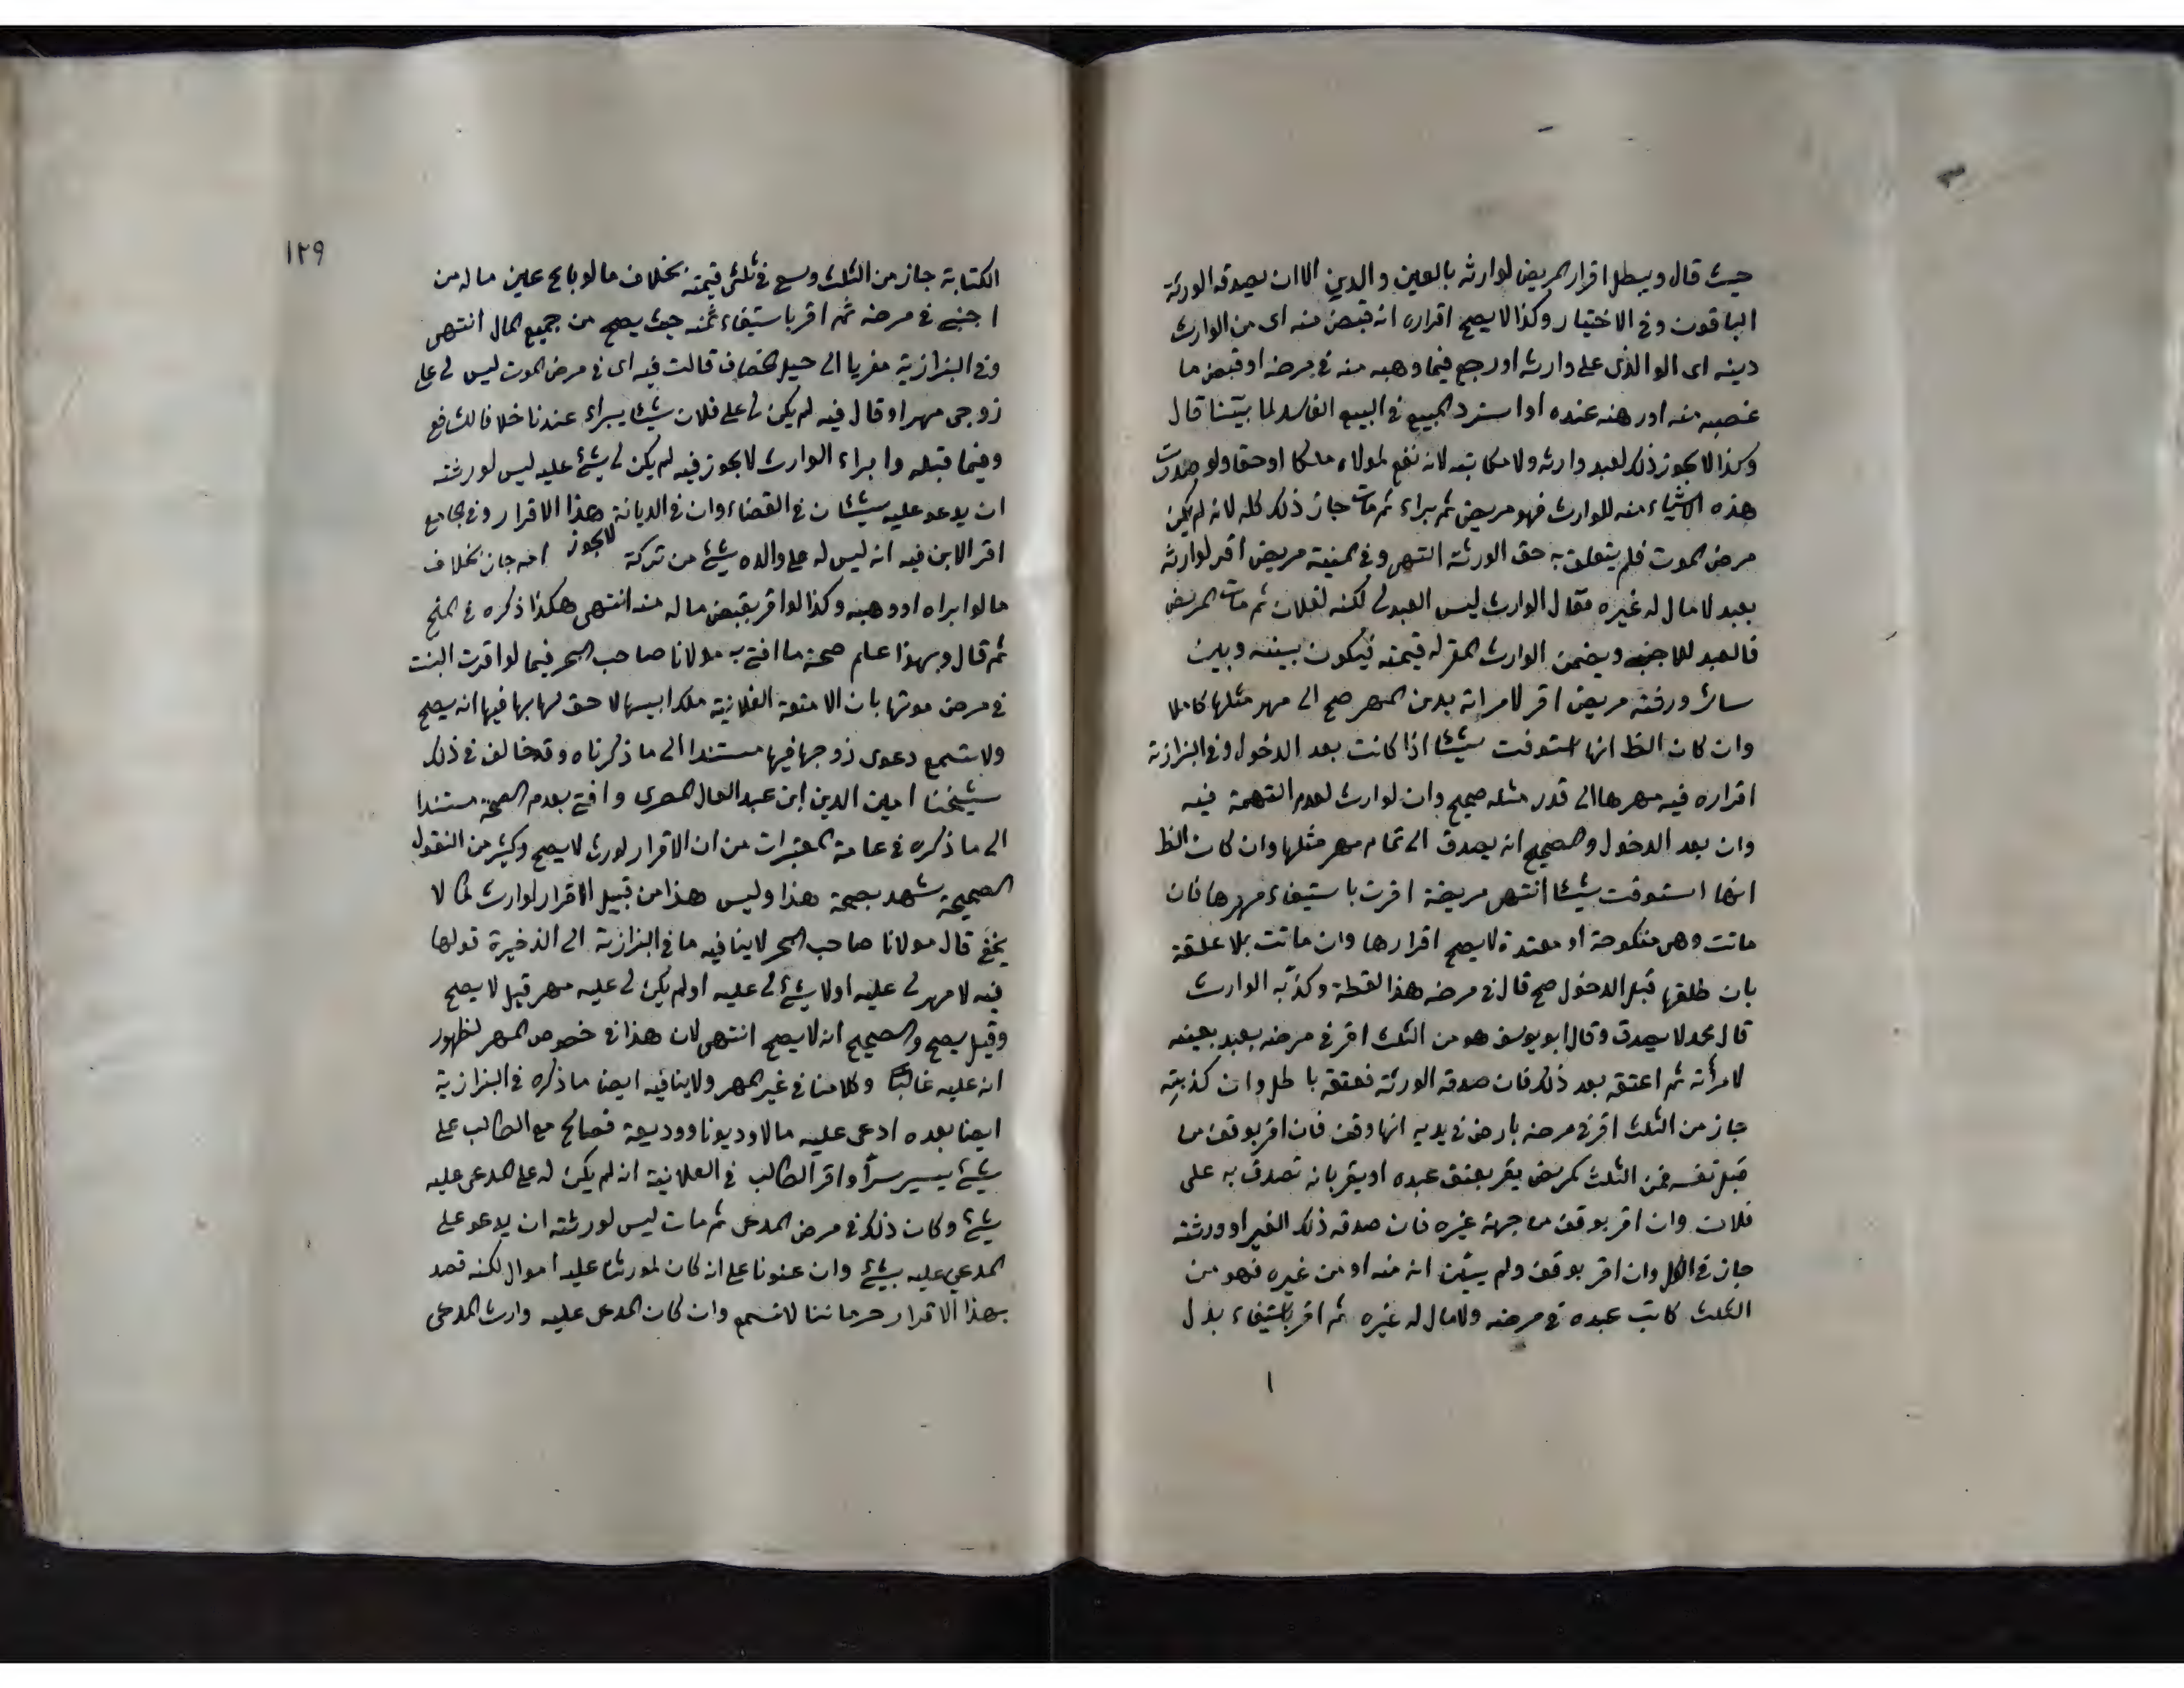 حيث قال ويبطل اقرار المريض لوارثه بالعين والدين الا ان يصدقه الورثة
الباقون وفي الاختيار وكذا لا يصح اقراره انه قبض منه اى من الوارث
دينه اى الو الذى على وارثه او رجع فيما وهبه منه في مرضه او قبض ما
غصبه منه او رهنه عنده او استرد المبيع في البيع الفاسد لما بيّنا قال
وكذا لا يجوز ذلك لعبد وارثه ولا مكاتبه لانه نفع لمولاه ملكا او حقا ولو صدرت
هذه الاشياء منه للوارث فهو مريض ثم براء ثم مات جاز ذلك كله لانه لم يكن
مرض الموت فلم يتعلق به حق الورثة انتهى وفي المنية مريض اقر لوارثه
بعبد لا مال له غيره فقال الوارث ليس العبد لى لكنه لفلان ثم مات المريض
فالعبد للاجنبى ويضمن الوارث المقر له قيمته فيكون بينه وبين
سائر ورثته مريض اقر لامراته بدين المهر صح الى مهر مثلها كاملا
وان كان الظ انها استوفت شيئا اذا كانت بعد الدخول وفي البزازية
اقراره فيه مهرها الى قدر مثله صحيح وان لوارث لعدم التهمة فيه
وان بعد الدخول والصحيح انه يصدق الى تمام مهر مثلها وان كان الظ
انها استوفت شيئا انتهى مريضة اقرت باستيفاء مهرها فان
ماتت وهى منكوحة او معتدة لا يصح اقرارها وان ماتت بلا علقة
بان طلقها قبل الدخول صح قال في مرضه هذا لقطة وكذّبه الوارث
قال محمد لا يصدق وقال ابو يوسف هو من الثلث اقر في مرضه بعبد بعينه
لامرأته ثم اعتقه بعد ذلك فان صدقه الورثة فعتقه باطل وان كذبته
جاز من الثلث اقر في مرضه بارض في يديه انها وقف فان اقر بوقف من
قبل نفسه فمن الثلث كمريض يقر بعتق عبده او يقر بانه تصدق به على
فلان وان اقر بوقف من جهة غيره فان صدقه ذلك الغير او ورثته
جاز في الكل وان اقر بوقف ولم يبين انه منه او من غيره فهو من
الثلث كاتب عبده في مرضه ولا مال له غيره ثم اقر باستيفاء بدل
١٢٩
الكتابة جاز من الثلث وسع في ثلثى قيمته بخلاف ما لو باع عين ماله من
اجنبى في مرضه ثم اقر باستيفاء ثمنه حيث يصح من جميع المال انتهى
وفي البزازية مغريا الى حيل الخصاف قالت فيه اى في مرض الموت ليس لى على
زوجى مهر او قال فيه لم يكن لى على فلان شيئا يبراء عندنا خلافا للشافع
وفيما قبله وابراء الوارث لا يجوز فيه لم يكن لى شئ عليه ليس لورثته
ان يدعو عليه شيئا في القضاء وان في الديانة هذا الاقرار وفي الجامع
لا يجوز
اقر الابن فيه انه ليس له على والده شئ من تركة امه جاز بخلاف
ما لو ابراه او وهبه وكذا لو اقر بقبض ماله منه انتهى هكذا ذكره في المنح
ثم قال وبهذا علم صحة ما افتى به مولانا صاحب البحر فيما لو اقرت البنت
في مرض موتها بان الامتعة الفلانية ملك ابيها لا حق لها بها فيها انه يصح
ولا تسمع دعوى زوجها فيها مستندا الى ما ذكرناه وقد خالف في ذلك
شيخنا امين الدين ابن عبد العال المصرى وافتى بعدم الصحة مستندا
الى ما ذكره في عامة المعتبرات من ان الاقرار لورث لا يصح وكثير من النقول
الصحيحة تشهد بصحة هذا وليس هذا من قبيل الاقرار لوارث كما لا
يخفى قال مولانا صاحب البحر لا ينافيه ما في البزازية الى الذخيرة قولها
فيه لا مهر لى عليه او لا شئ لى عليه او لم يكن لى عليه مهر قيل لا يصح
وقيل يصح والصحيح انه لا يصح انتهى لان هذا في خصوص المهر لظهور
انه عليه غالبًا وكلامنا في غير المهر ولا ينافيه ايضا ما ذكره في البزازية
ايضا بعده ادعى عليه مالا وديونا ووديعة فصالح مع الطالب على
شئ يسير سرًا واقر الطالب في العلانية انه لم يكن له على المدعى عليه
شئ وكان ذلك في مرض المدعى ثم مات ليس لورثته ان يدعو على
المدعى عليه بشئ وان عنونا على ان كان لمورثنا عليه اموال لكنه قصد
بهذا الاقرار حرماننا لا تسمع وان كان المدعى عليه وارث المدعى